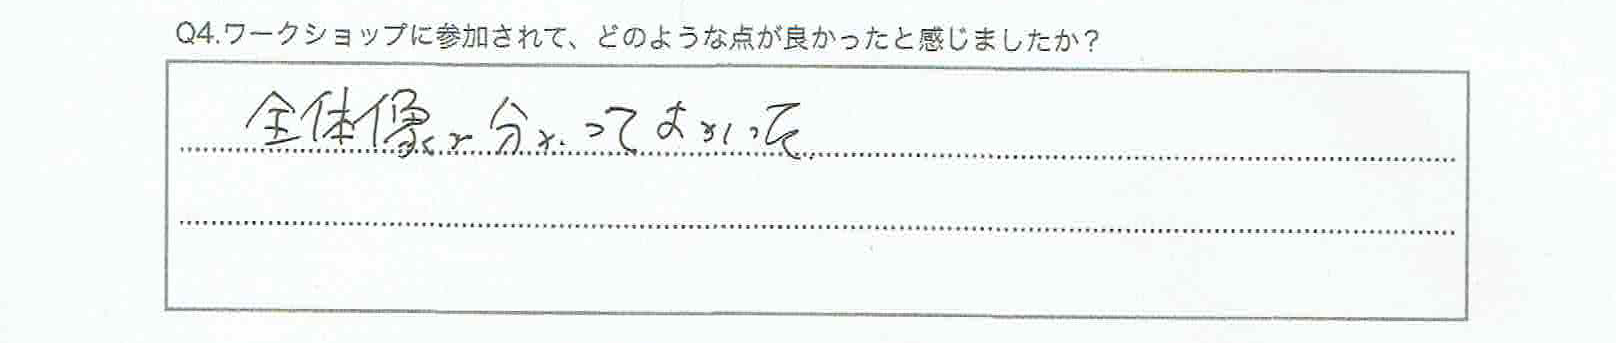 Q4.ワークショップに参加されて、どのような点が良かったと感じましたか？
全体像が分かって